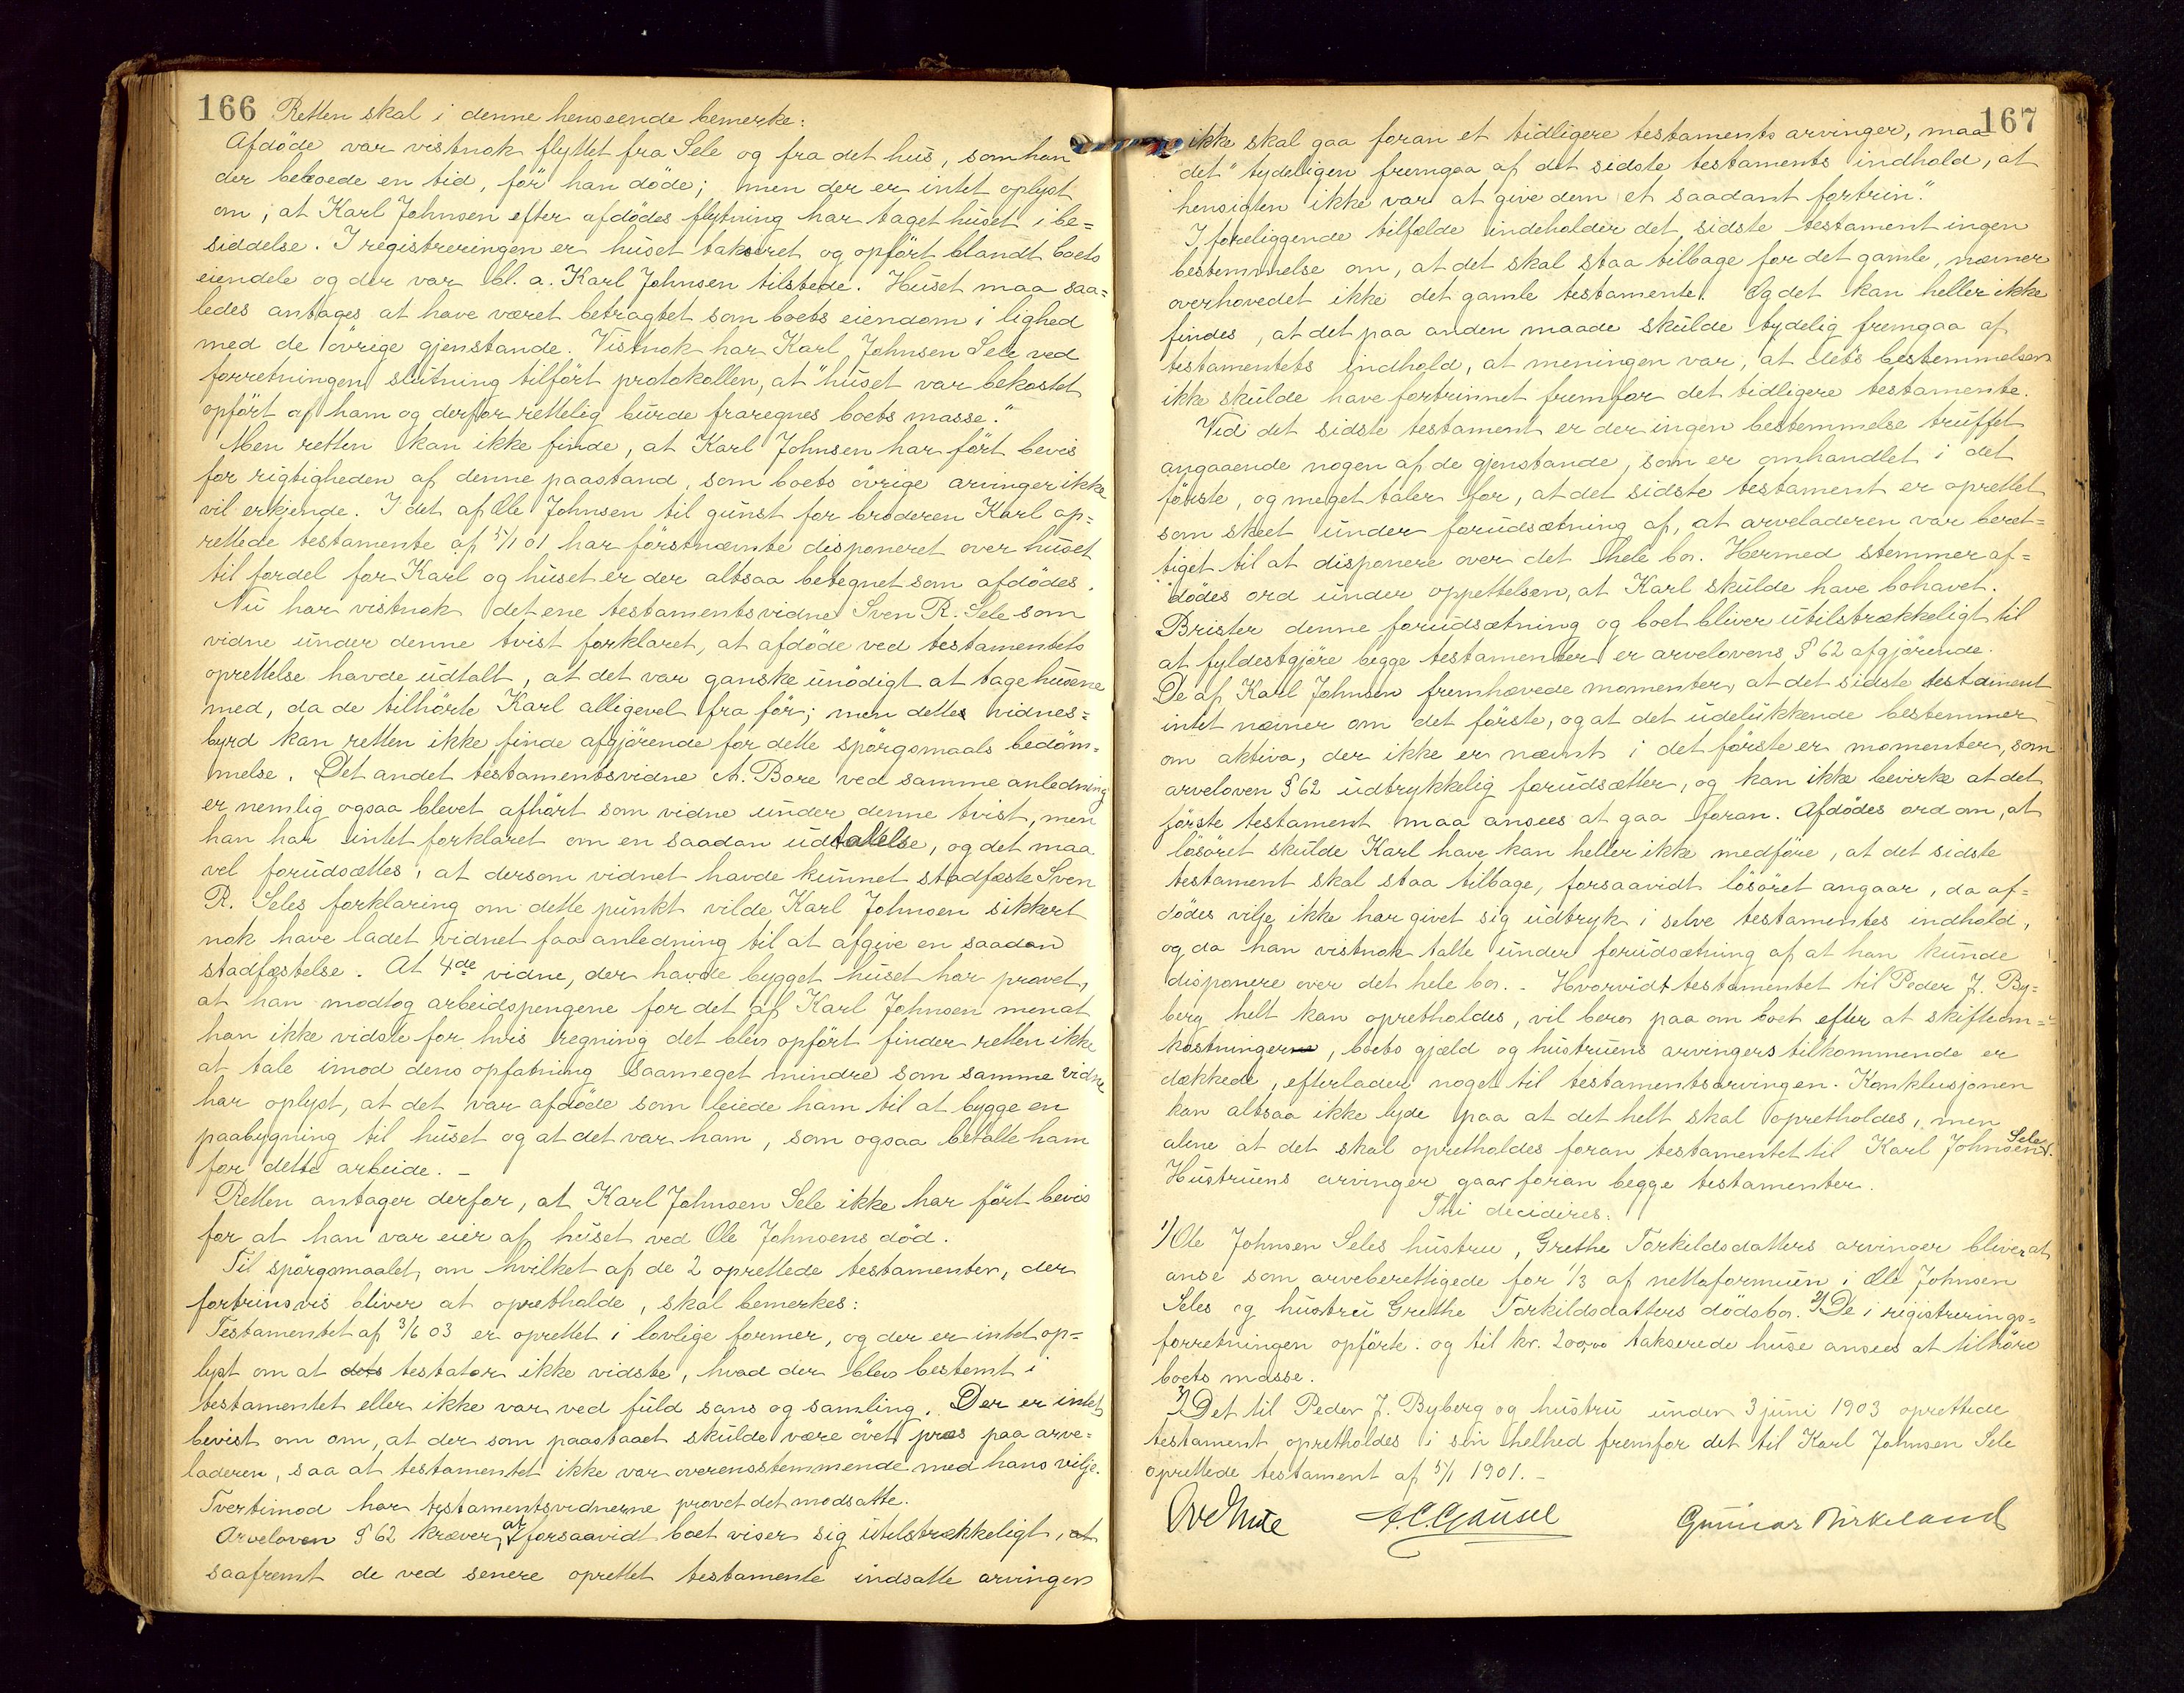 166 Retten skal i denne henseende bemerke:
Afdöde var vistnok flyttet fra Sele og fra det hus, som han
der beboede en tid, för han döde; men der er intet oplyst
om, at Karl Johnsen efter afdödes flytning har taget huset i be=
siddelse. I registreringen er huset takseret og opfört blandt boets
eiendele og der var bl. a. Karl Johnsen tilstede. Huset maa saa=
ledes antages at have været betragtet som boets eiendom i lighed
med de övrige gjenstande. Vistnok har Karl Johnsen Sele ved
forretningens slutning tilfört protokollen, at "huset var bekostet
opfört af ham og derfor rettelig burde fraregnes boets masse."
Men retten kan ikke finde, at Karl Johnsen har fört bevis
for rigtigheden af denne paastand, som boets övrige arvinger ikke
vil erkjende. I det af Ole Johnsen til gunst for broderen Karl op=
rettede testamente af 5/1 01 har förstnævnte disponeret over huset
til fordel for Karl og huset er der altsaa betegnet som afdödes.
Nu har vistnok det ene testamentsvidne Sven R. Sele som
vidne under denne tvist forklaret, at afdöde ved testamentets
oprettelse havde udtalt, at det var ganske unödigt at tage husene
med, da de tilhörte Karl alligevel fra för; men dettes vidnes=
byrd kan retten ikke finde afgjörende for dette spörgsmaals bedöm=
melse. Det andet testamentsvidne A. Bore ved samme anledning
er nemlig ogsaa blevet afhört som vidne under denne tvist, men
han har intet forklaret om en saadan udtalelse, og det maa
vel forudsættes, at dersom vidnet havde kunnet stadfæste Sven
R. Seles forklaring om dette punkt vilde Karl Johnsen sikkert
nok have ladet vidnet faa anledning til at afgive en saadan
stadfæstelse. At 4de vidne, der havde bygget huset har provet,
at han modtog arbeidspengene for det af Karl Johnsen men at
han ikke vidste for hvis regning det blev opfört finder retten ikke
at tale imod dens opfatning saameget mindre som samme vidne
har oplyst, at det var afdöde som leiede ham til at bygge en
paabygning til huset og at det var ham, som ogsaa betalte ham
for dette arbeide. –
Retten antager derfor, at Karl Johnsen Sele ikke har fört bevis
for at han var eier af huset ved Ole Johnsens död.
Til spörgsmaalet, om hvilket af de 2 oprettede testamenter, der
fortrinsvis bliver at opretholde, skal bemerkes:
Testamentet af 3/6 03 er oprettet i lovlige former, og der er intet op=
lyst om at dets testator ikke vidste, hvad der blev bestemt i
testamentet eller ikke var ved fuld sans og samling. Der er intet
bevist om om, at der som paastaaet skulde være övet pres paa arve=
laderen, saa at testamentet ikke var overensstemmende med hans vilje.
Tvertimod har testamentsvidnerne provet det modsatte.
Arveloven § 62 kræver, at forsaavidt boet viser sig utilstrækkeligt, at
saafremt de ved senere oprettet testamente indsatte arvinger
167
ikke skal gaa foran et tidligere testaments arvinger, maa
det "tydeligen fremgaa af det sidste testaments indhold, at
hensigten ikke var at give dem et saadant fortrin".
I foreliggende tilfælde indeholder det sidste testament ingen
bestemmelse om, at det skal staa tilbage for det gamle, nævner
overhovedet ikke det gamle testamente. Og det kan heller ikke
findes, at det paa anden maade skulde tydelig fremgaa af
testamentets indhold, at meningen var, at dets bestemmelser
ikke skulde have fortrinnet fremfor det tidligere testamente.
Ved det sidste testament er der ingen bestemmelse truffet
angaaende nogen af de gjenstande, som er omhandlet i det
förste, og meget taler for, at det sidste testament er oprettet
som skeet under forudsætning af, at arveladeren var beret=
tiget til at disponere over det hele bo. Hermed stemmer af=
dödes ord under oppettelsen, at Karl skulde have bohavet.
Brister denne forudsætning og boet bliver utilstrækkeligt til
at fyldestgjöre begge testamenter er arvelovens § 62 afgjörende.
De af Karl Johnsen fremhævede momenter, at det sidste testament
intet nævner om det förste, og at det udelukkende bestemmer
om aktiva, der ikke er nævnt i det förste er momenter, som
arveloven § 62 udtrykkelig forudsætter, og kan ikke bevirke at det
förste testament maa ansees at gaa foran. Afdödes ord om, at
lösöret skulde Karl have kan heller ikke medföre, at det sidste
testament skal staa tilbage, forsaavidt lösöret angaar, da af=
dödes vilje ikke har givet sig udtryk i selve testamentes indhold,
og da han vistnok talte under forudsætning af at han kunde
disponere over det hele bo. – Hvorvidt testamentet til Peder J. By=
berg helt kan opretholdes, vil bero paa om boet efter at skifteom=
kostninger, boets gjæld og hustruens arvingers tilkommende er
dækkede, efterlader noget til testamentsarvingen. Konklusjonen
kan altsaa ikke lyde paa at det helt skal opretholdes, men
alene at det skal opretholdes foran testamentet til Karl Johnsen Sele.
Hustruens arvinger gaar foran begge testamenter.
Thi decideres:
1) Ole Johnsen Seles hustru, Grethe Torkildsdatters arvinger bliver at
anse som arveberettigede for 1/3 af nettoformuen i Ole Johnsen
Seles og hustru Grethe Torkildsdatters dödsbo. 2) De i registrerings=
forretningen opförte og til kr. 200,00 takserede huse ansees at tilhöre
boets masse.
3) Det til Peder J. Byberg og hustru under 3 juni 1903 oprettede
testament opretholdes i sin helhed fremfor det til Karl Johnsen Sele
oprettede testament af 5/1 1901. –
A.C. Gausel Gunnar Birkeland